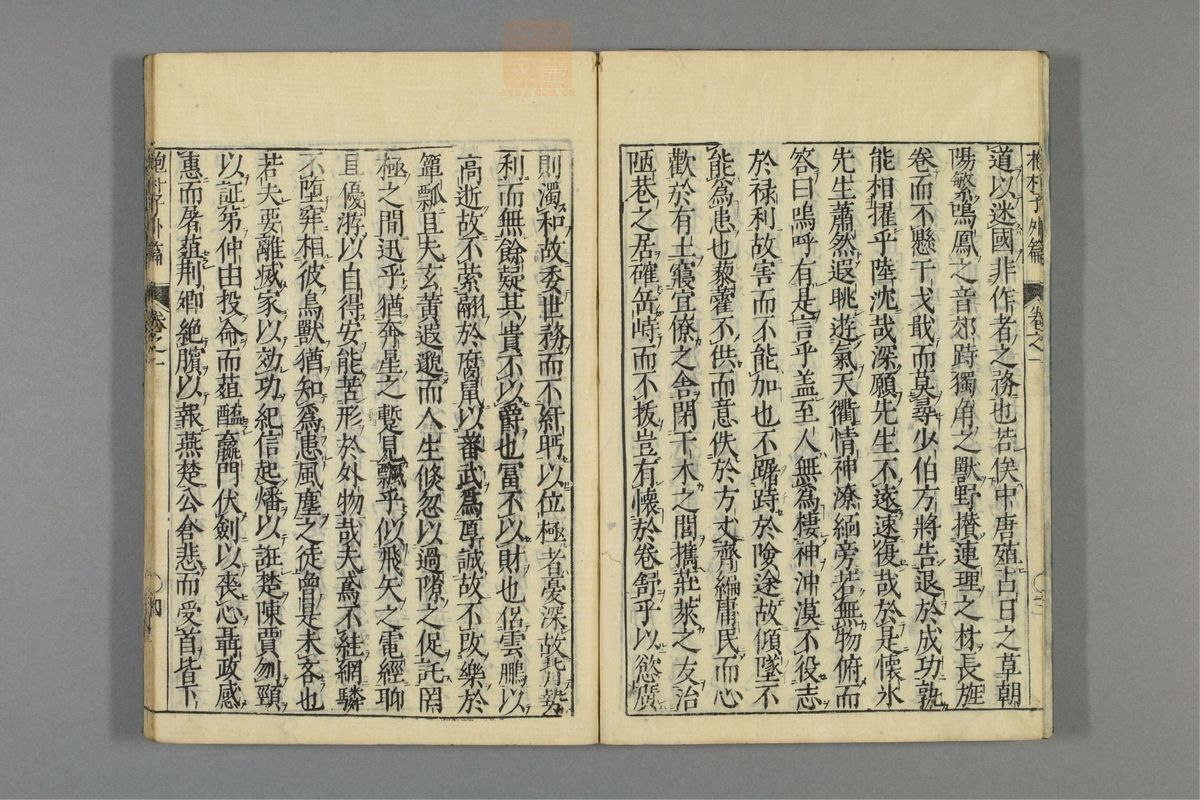 抱朴子外篇 卷之一 〇三
道以迷國非作者之務也若俟中唐殖占日之草朝
陽繁鳴鳳之音郊跱獨角之獸野攅連理之林長旌
卷而不懸干戈戢而莫尋少伯方將告退於成功孰
能相擢乎陸沈哉深願先生不遠速復哉於是懷氷
先生蕭然遐眺遊氣天衢情神遼緬旁若無物俯而
答曰嗚呼有是言乎盖至人無為棲神沖漠不役志
於祿利故害而不能加也不躡跱於險途故傾墜不
能為患也藜藿不供而意佚於方丈齊編庸民而心
歡於有土寢宜僚之舍閉干木之閭攜莊萊之友治
陋巷之居確岳峙而不拔豈有懷於卷舒乎以慾廣
則濁和故委世務而不紆眄以位極者憂深故背勢
利而無餘疑其貴不以爵也富不以財也侶雲鵬以
高逝故不縈翮於腐鼠以蕃武爲厚誡故不改樂於
簞瓢且夫玄黃遐邈而人生倏忽以過隙之促託罔
極之間迅乎猶奔星之暫見飄乎似飛矢之電經聊
且優游以自得安能苦形於外物哉夫鳶不絓網驎
不墮穽相彼鳥獸猶知爲患風塵之徒曾是未吝也
若夫要離滅家以効功紀信起燔以誑楚陳賈刎頸
以証弟仲由投命而葅醢嬴門伏劍以表心聶政感
惠而屠葅荆卿絶臏以報燕樊公含悲而受首皆下
抱朴子外篇 卷之一 〇四